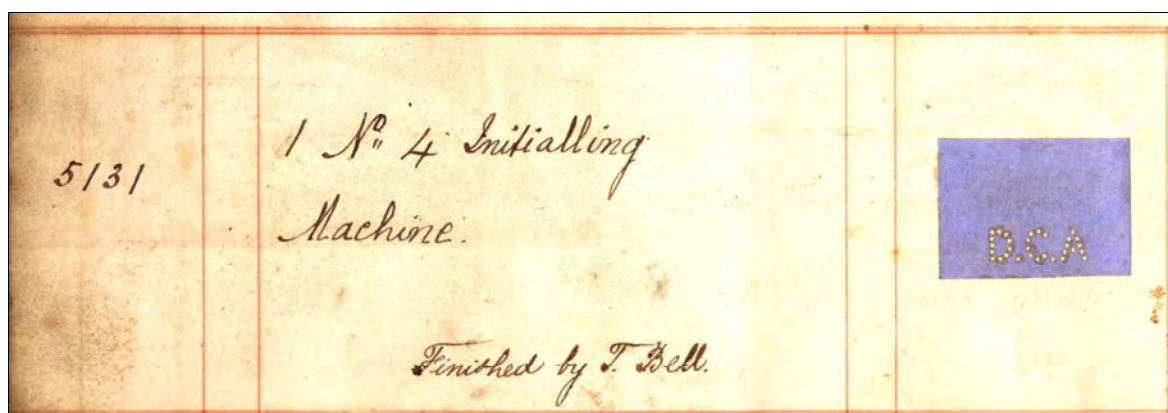 5131
1 No. 4 Initialling
Machine.
Finished by T. Bell.
D.C.A